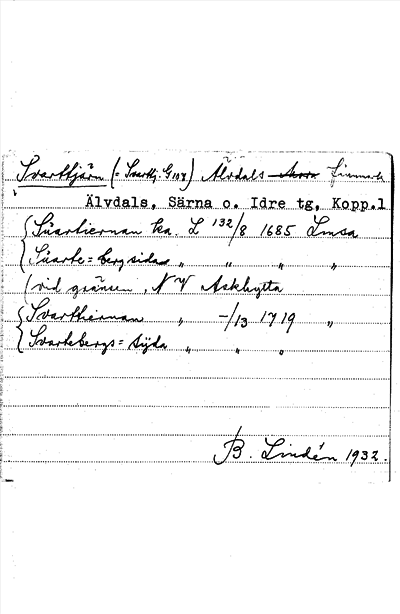 Svarttjärn (= Svarttj. G 108) Älvdals finnmark
Älvdals, Särna o. Idre tg, Kopp.l
Suartiernan ka. L 132/8 1685 Lmsa
Suarte= bergsidan " " " "
(vid gränsen, NV Askhytta
Svarthiernan " -/13 1719 "
Svartebergs= sijda " " "
B. Lindén 1932.